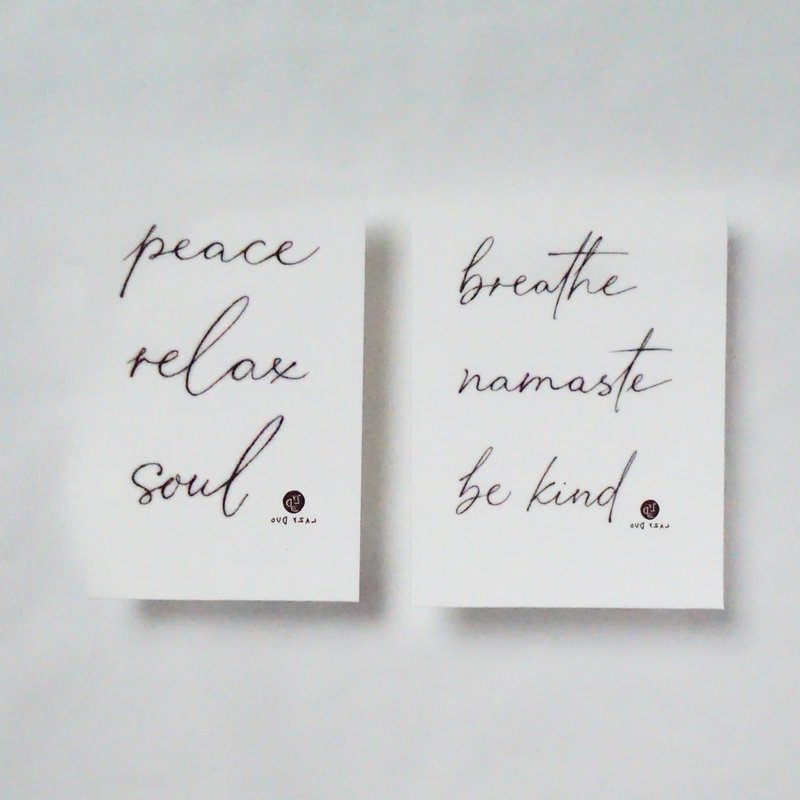 peace
relax
soul
LAZY DUO
breathe
namaste
be kind
LAZY DUO